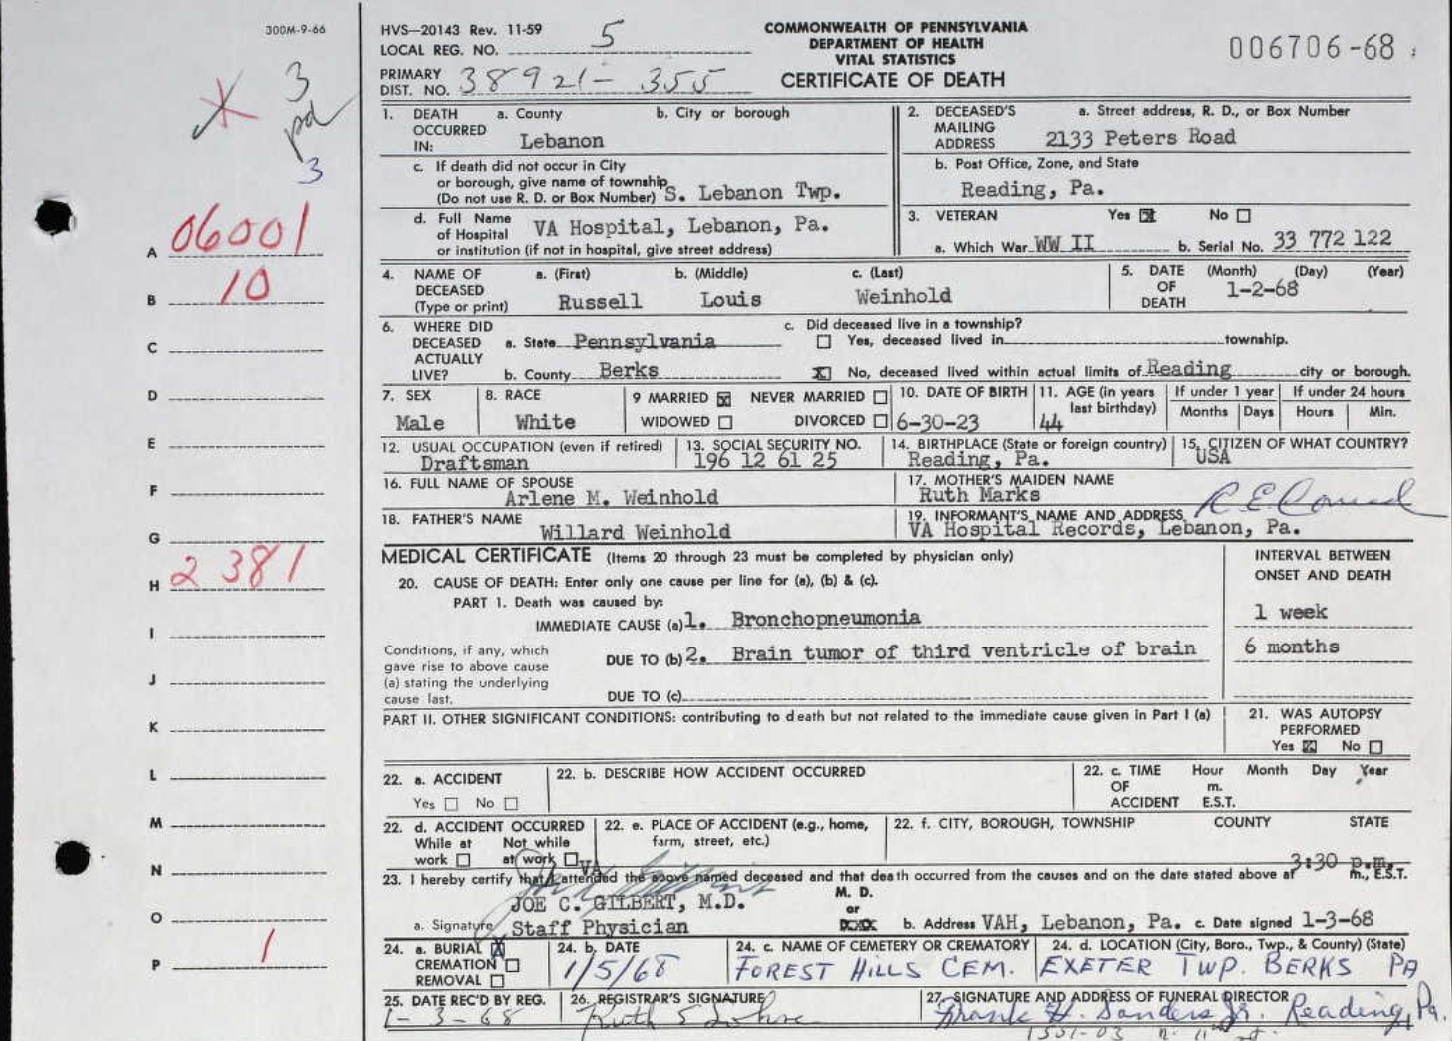 300M-9-66
HVS—20143 Rev. 11-59
LOCAL REG. NO. 5
PRIMARY DIST. NO. 38921- 355
COMMONWEALTH OF PENNSYLVANIA
DEPARTMENT OF HEALTH
VITAL STATISTICS
CERTIFICATE OF DEATH
006706-68
3
pd
3
A 06001
B 10
C
D
E
F
G
H 2 381
I
J
K
L
M
N
O
P 1
1. DEATH OCCURRED IN: a. County Lebanon b. City or borough
c. If death did not occur in City
or borough, give name of township
(Do not use R. D. or Box Number) S. Lebanon Twp.
d. Full Name of Hospital VA Hospital, Lebanon, Pa.
or institution (if not in hospital, give street address)
2. DECEASED'S MAILING ADDRESS a. Street address, R. D., or Box Number
2133 Peters Road
b. Post Office, Zone, and State
Reading, Pa.
3. VETERAN Yes ☒ No ☐
a. Which War WW II b. Serial No. 33 772 122
4. NAME OF DECEASED (Type or print) a. (First) b. (Middle) c. (Last)
Russell Louis Weinhold
5. DATE OF DEATH (Month) (Day) (Year)
1-2-68
6. WHERE DID DECEASED ACTUALLY LIVE? a. State Pennsylvania
b. County Berks
c. Did deceased live in a township?
☐ Yes, deceased lived in township.
☒ No, deceased lived within actual limits of Reading city or borough.
7. SEX
Male
8. RACE
White
9 MARRIED ☒ NEVER MARRIED ☐
WIDOWED ☐ DIVORCED ☐
10. DATE OF BIRTH
6-30-23
11. AGE (in years last birthday)
44
If under 1 year
Months Days
If under 24 hours
Hours Min.
12. USUAL OCCUPATION (even if retired)
Draftsman
13. SOCIAL SECURITY NO.
196 12 61 25
14. BIRTHPLACE (State or foreign country)
Reading, Pa.
15. CITIZEN OF WHAT COUNTRY?
USA
16. FULL NAME OF SPOUSE
Arlene M. Weinhold
17. MOTHER'S MAIDEN NAME
Ruth Marks
18. FATHER'S NAME
Willard Weinhold
19. INFORMANT'S NAME AND ADDRESS
VA Hospital Records, Lebanon, Pa.
MEDICAL CERTIFICATE (Items 20 through 23 must be completed by physician only)
INTERVAL BETWEEN
ONSET AND DEATH
20. CAUSE OF DEATH: Enter only one cause per line for (a), (b) & (c).
PART 1. Death was caused by:
IMMEDIATE CAUSE (a) 1. Bronchopneumonia 1 week
Conditions, if any, which
gave rise to above cause
(a) stating the underlying
cause last.
DUE TO (b) 2. Brain tumor of third ventricle of brain 6 months
DUE TO (c)
PART II. OTHER SIGNIFICANT CONDITIONS: contributing to death but not related to the immediate cause given in Part I (a)
21. WAS AUTOPSY
PERFORMED
Yes ☒ No ☐
22. a. ACCIDENT
Yes ☐ No ☐
22. b. DESCRIBE HOW ACCIDENT OCCURRED
22. c. TIME OF ACCIDENT Hour Month Day Year
m.
E.S.T.
22. d. ACCIDENT OCCURRED
While at work ☐ Not while at work ☐
22. e. PLACE OF ACCIDENT (e.g., home,
farm, street, etc.)
22. f. CITY, BOROUGH, TOWNSHIP COUNTY STATE
VA
3:30 p.m.
23. I hereby certify that I attended the above named deceased and that death occurred from the causes and on the date stated above at m., E.S.T.
JOE C. GILBERT, M.D.
M. D.
or
a. Signature Staff Physician b. Address VAH, Lebanon, Pa. c. Date signed 1-3-68
24. a. BURIAL ☒
CREMATION ☐
REMOVAL ☐
24. b. DATE
1/5/68
24. c. NAME OF CEMETERY OR CREMATORY
FOREST HILLS CEM.
24. d. LOCATION (City, Boro., Twp., & County) (State)
EXETER TWP. BERKS PA
25. DATE REC'D BY REG.
1-3-68
26. REGISTRAR'S SIGNATURE
Ruth S
27. SIGNATURE AND ADDRESS OF FUNERAL DIRECTOR
Frank H. Sanders Jr. Reading, Pa.